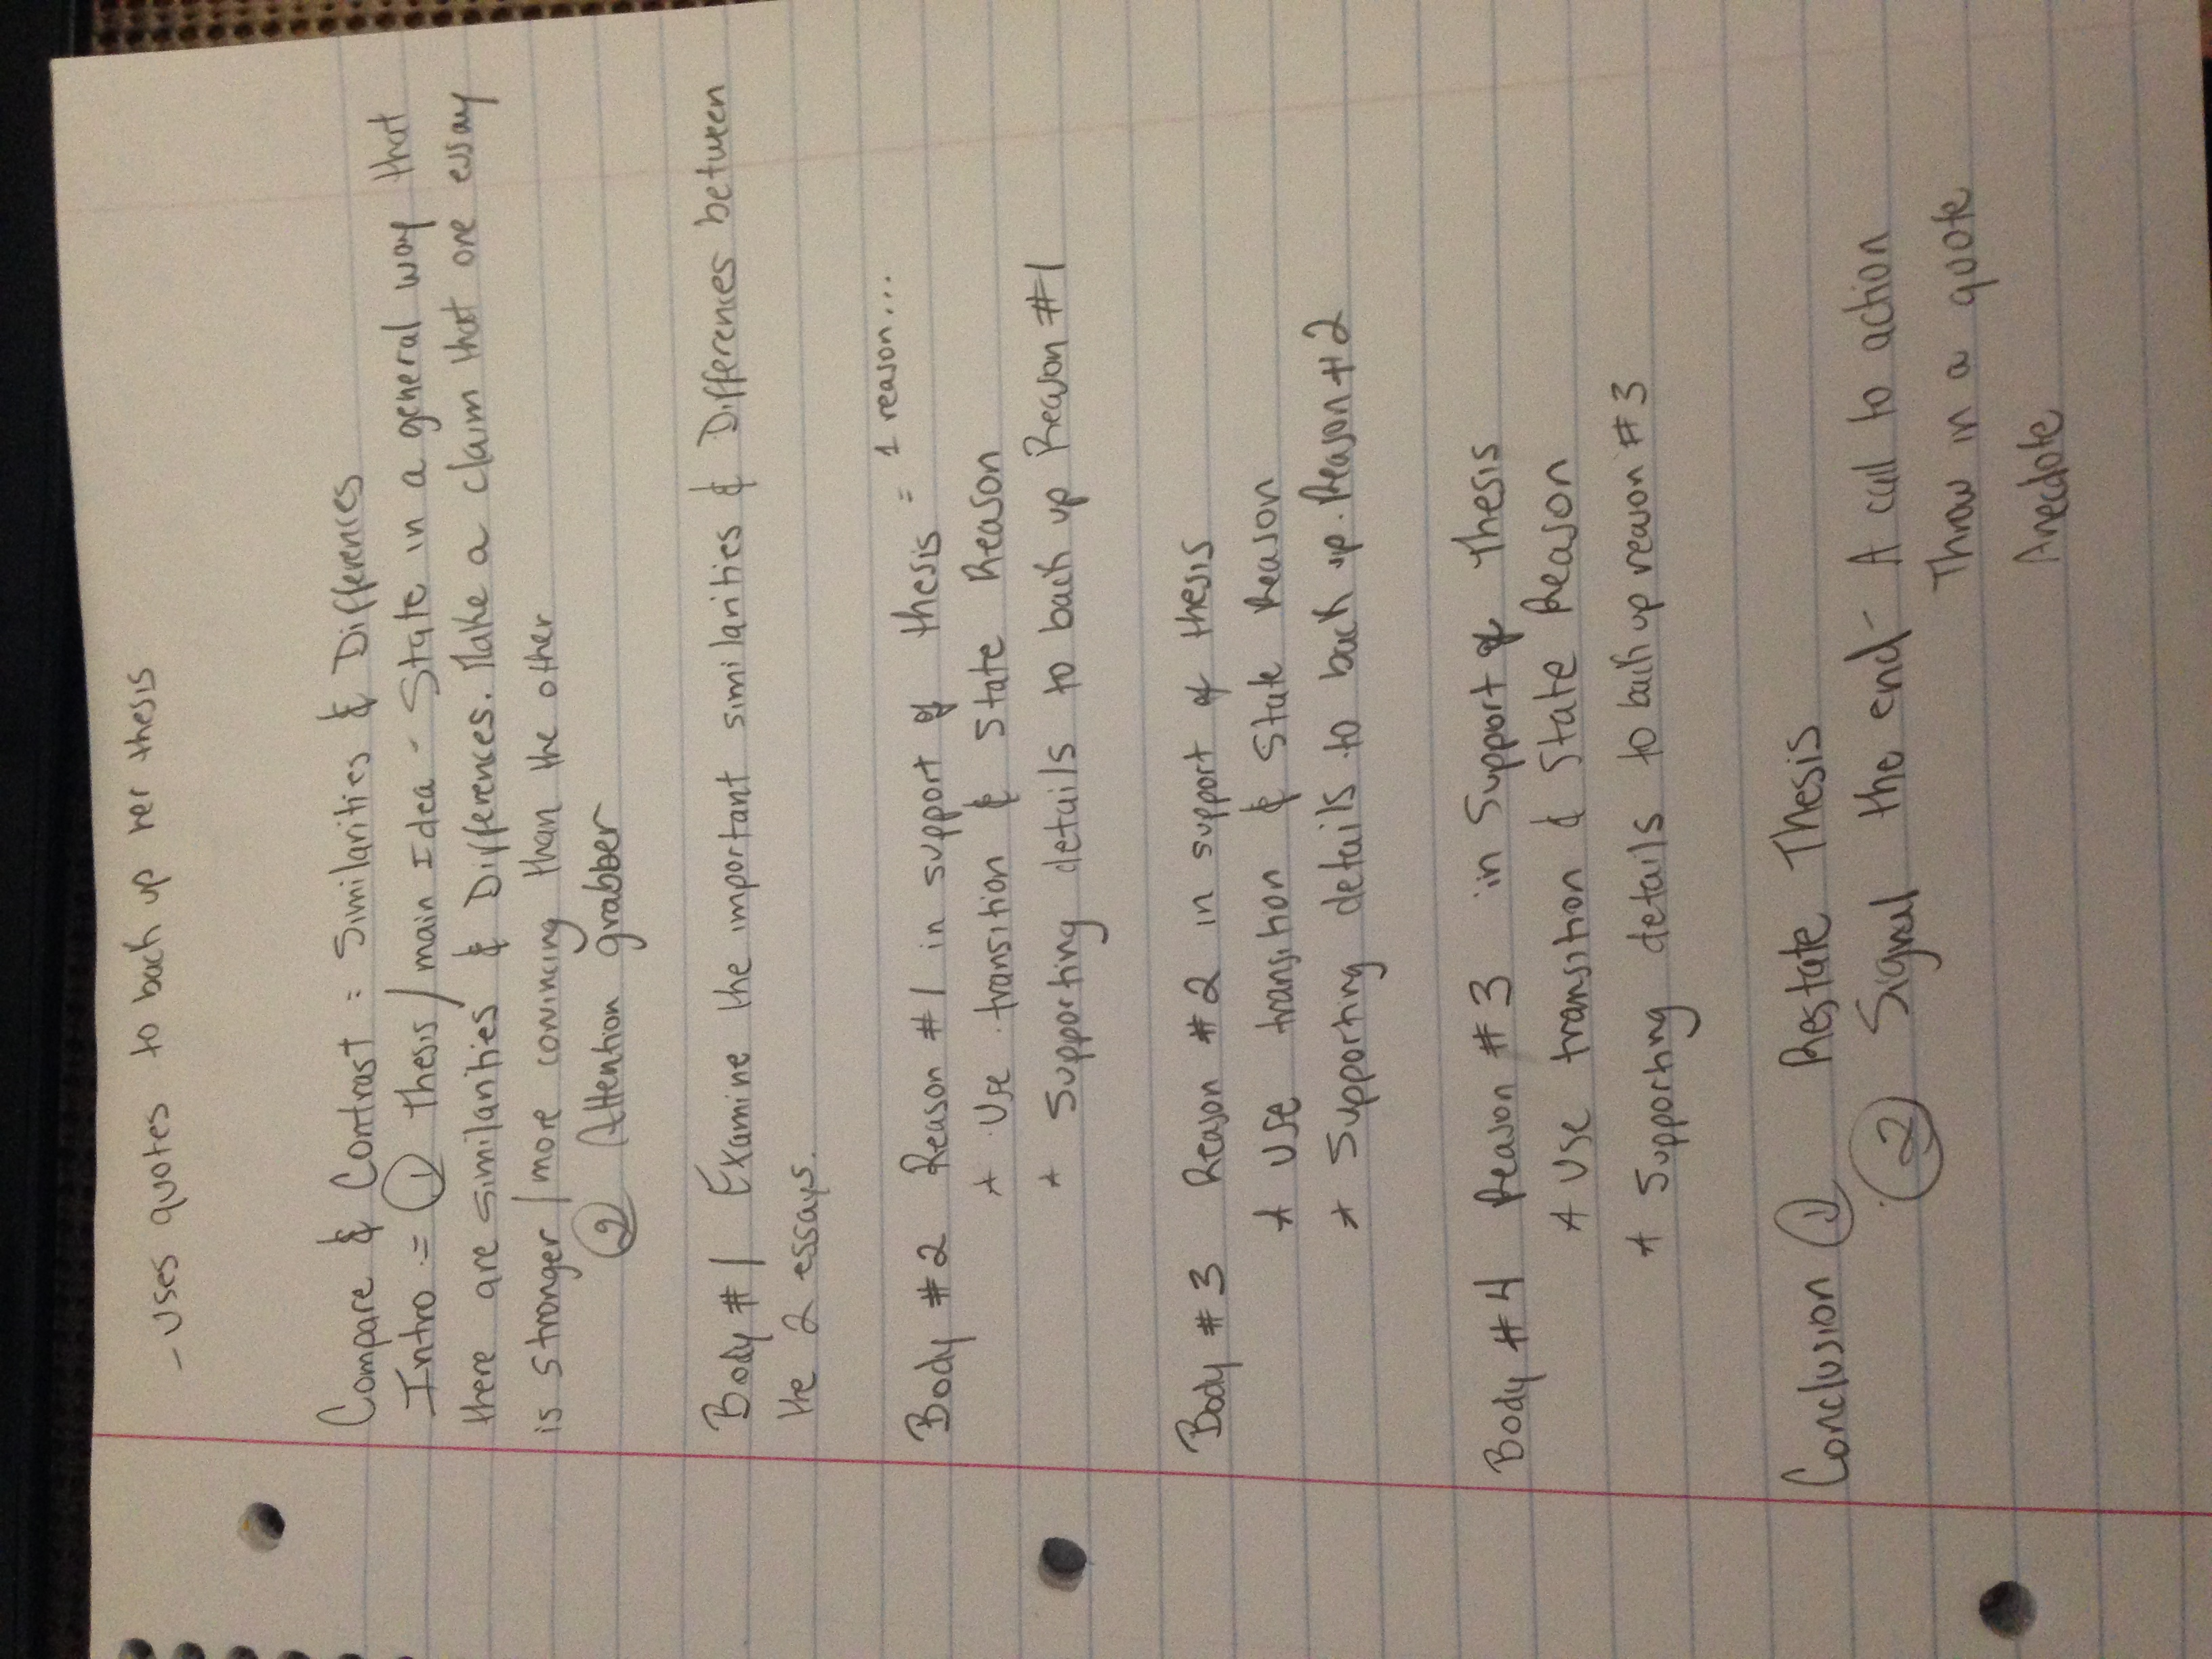 - uses quotes to back up her thesis
Compare & Contrast = Similarities & Differences
Intro = ① thesis/main Idea - State in a general way that
there are similarities & Differences. Make a claim that one essay
is stronger/more convincing than the other
② Attention grabber
Body #1 Examine the important similarities & Differences between
the 2 essays.
Body #2 Reason #1 in support of thesis = 1 reason...
* Use transition & State Reason
* Supporting details to back up Reason #1
Body #3 Reason #2 in support of thesis
* Use transition & State Reason
* Supporting details to back up Reason #2
Body #4 Reason #3 in Support of Thesis
* Use transition & State Reason
* Supporting details to back up reason #3
Conclusion ① Restate Thesis
② Signal the end - A call to action
Throw in a quote
Anecdote